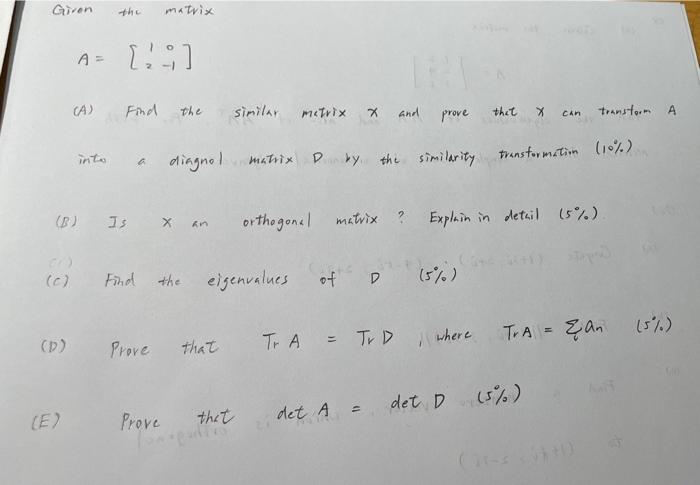 Given the matrix
A = [1 0
2 -1]
(A) Find the similar matrix X and prove that X can transform A
into a diagnol matrix D by the similarity transformation (10%)
(B) Is X an orthogonal matrix ? Explain in detail (5%)
(C) Find the eigenvalues of D (5%)
(D) Prove that Tr A = Tr D , where Tr A = Σ an (5%)
(E) Prove that det A = det D (5%)